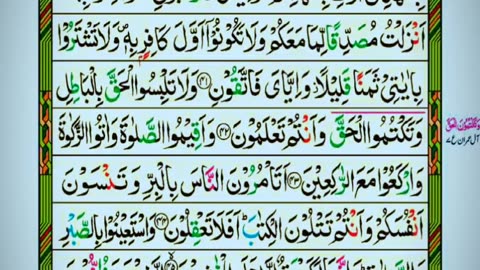 اَنْزَلْتُ مُصَدِّقًا لِّمَا مَعَكُمْ وَلَا تَكُوْنُوْۤا اَوَّلَ كَافِرٍۭ بِهٖ ۪ وَلَا تَشْتَرُوْا
بِاٰيٰتِيْ ثَمَنًا قَلِيْلًا ؗ وَّاِيَّايَ فَاتَّقُوْنِ ﴿۴۱﴾ وَلَا تَلْبِسُوا الْحَقَّ بِالْبَاطِلِ
وَتَكْتُمُوا الْحَقَّ وَاَنْتُمْ تَعْلَمُوْنَ ﴿۴۲﴾ وَاَقِيْمُوا الصَّلٰوةَ وَاٰتُوا الزَّكٰوةَ
وَارْكَعُوْا مَعَ الرّٰكِعِيْنَ ﴿۴۳﴾ اَتَاْمُرُوْنَ النَّاسَ بِالْبِرِّ وَتَنْسَوْنَ
اَنْفُسَكُمْ وَاَنْتُمْ تَتْلُوْنَ الْكِتٰبَ ؕ اَفَلَا تَعْقِلُوْنَ ﴿۴۴﴾ وَاسْتَعِيْنُوْا بِالصَّبْرِ